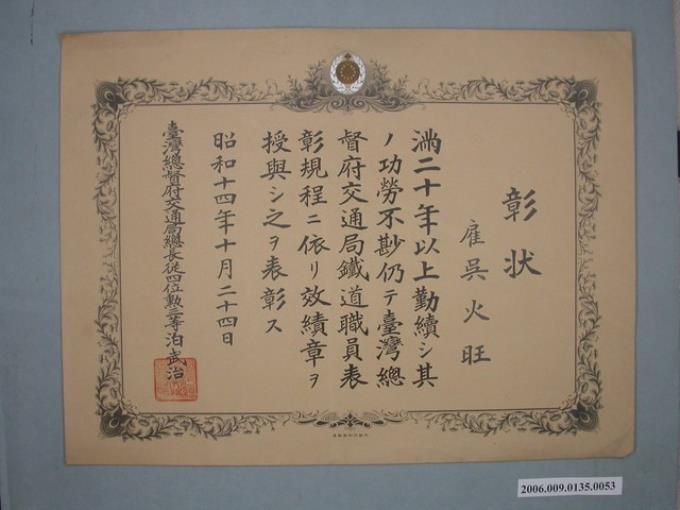 彰状
雇吳火旺
満二十年以上勤續シ其
ノ功勞不尠仍テ臺灣總
督府交通局鐵道職員表
彰規程ニ依リ效績章ヲ
授與シ之ヲ表彰ス
昭和十四年十月二十四日
臺灣總督府交通局總長從四位勲三等泊武治
2006.009.0135.0053